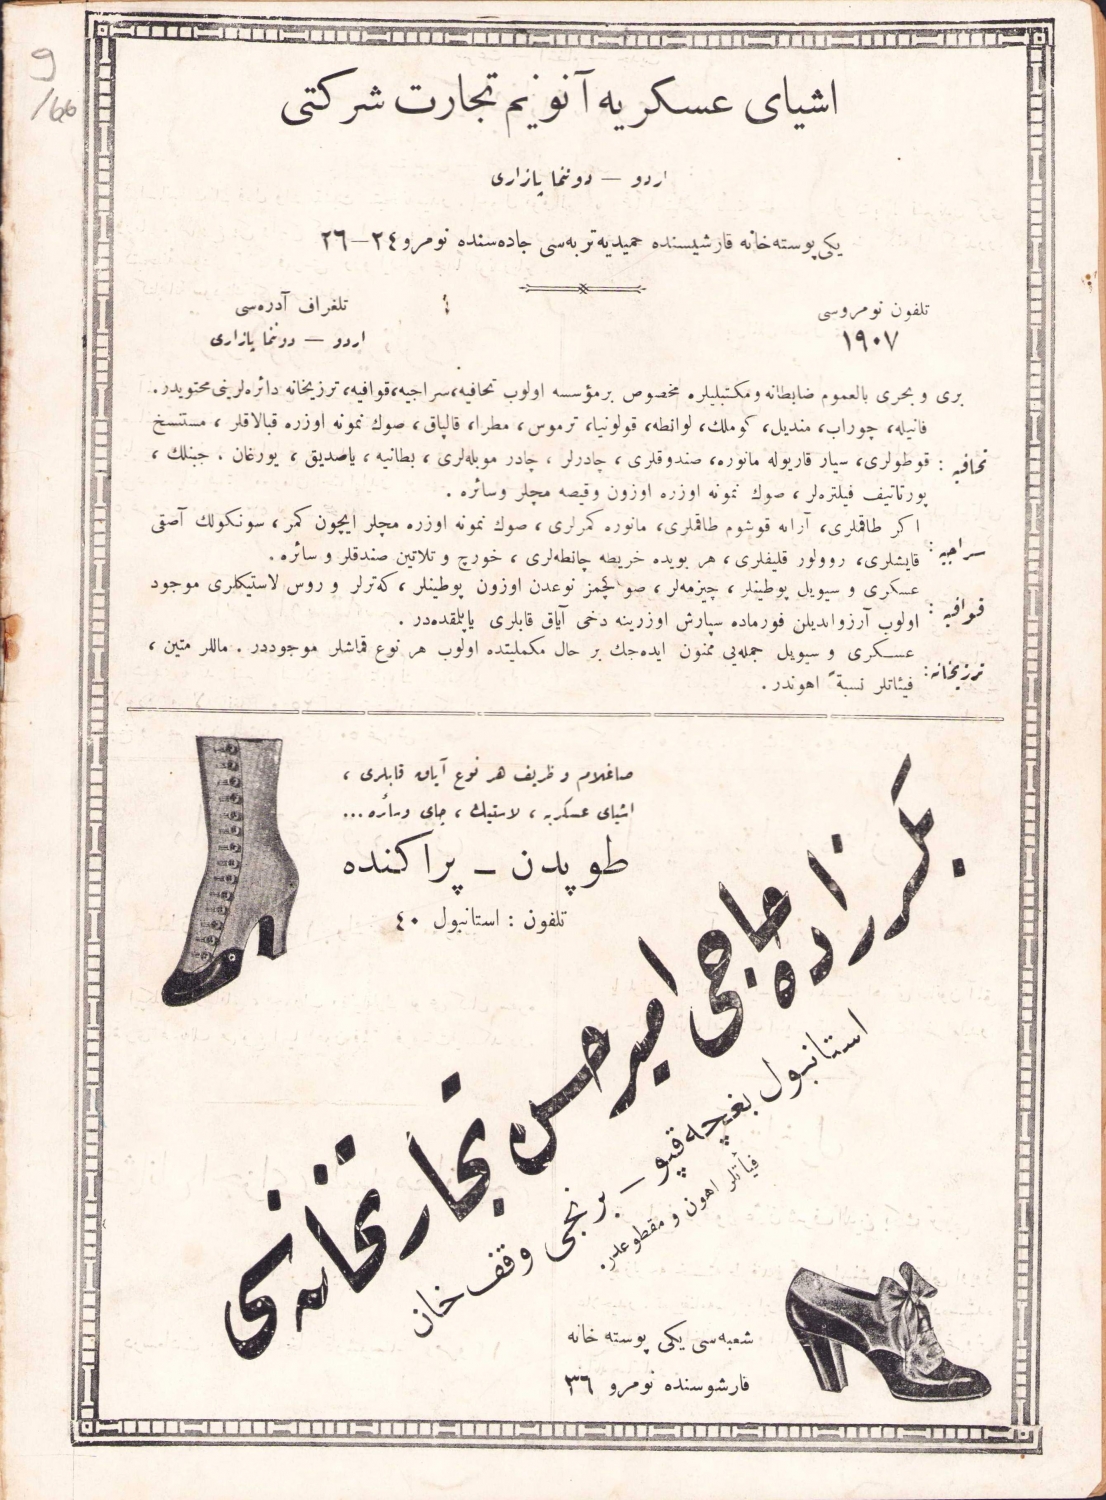 اشیای عسکریه آنونیم تجارت شرکتی
اردو — دوننما پازاری
یکی پوسته‌خانه قارشیسنده حمیدیه تربه‌سی جاده‌سنده نومرو ٢٤—٢٦
تلفون نومروسی
١٩٠٧
تلغراف آدره‌سی
اردو — دوننما پازاری
بری و بحری بالعموم ضابطانه ومکتبلیلره مخصوص برمؤسسه اولوب تحافیه، سراجیه، قوافیه، ترزیخانه دائره‌لرینی محتویدر.
تحافیه :
فانیله، چوراب، مندیل، کوملك، لوانطه، قولونیا، ترموس، مطرا، قالپاق، صوك نمونه اوزره قبالاقلر، مستنسخ
قوطولری، سیار قاریوله مانوره، صندوقلری، چادرلر، چادر موبله‌لری، بطانیه، یاصدیق، یورغان، جبنلك،
پورتاتیف فیلتره‌لر، صوك نمونه اوزره اوزون وقیصه مچلر وسائره.
سراجیه :
اکر طاقملری، آرابه قوشوم طاقملری، مانوره کمرلری، صوك نمونه اوزره مچلر ایچون کمر، سونکولك آصقی
قایشلری، روولور قلیفلری، هر بویده خریطه چانطه‌لری، خورج و تلاتین صندقلر و سائره.
قوافیه :
عسکری و سیویل پوطینلر، چیزمه‌لر، صو کچمز نوعدن اوزون پوطینلر، که‌ترلر و روس لاستیکلری موجود
اولوب آرزوایدیلن فورماده سپارش اوزرینه دخی آیاق قابلری یاپلمقده‌در.
ترزیخانه:
عسکری و سیویل جمله‌یی ممنون ایده‌جك بر حال مکملیتده اولوب هر نوع قماشلر موجوددر. ماللر متین،
فیئاتلر نسبةً اهوندر.
صاغلام و ظریف هر نوع آیاق قابلری،
اشیای عسکریه، لاستیك، چای وسائره...
طوپدن — پراکنده
تلفون : استانبول ٤٠
بکرزاده حاجی امیرحسن تجارتخانه‌سی
استانبول بغچه‌قپو — برنجی وقف خان
فیأتلر اهون و مقطوعدر.
شعبه‌سی یکی پوسته خانه
قارشوسنده نومرو ٣٦
9
/66